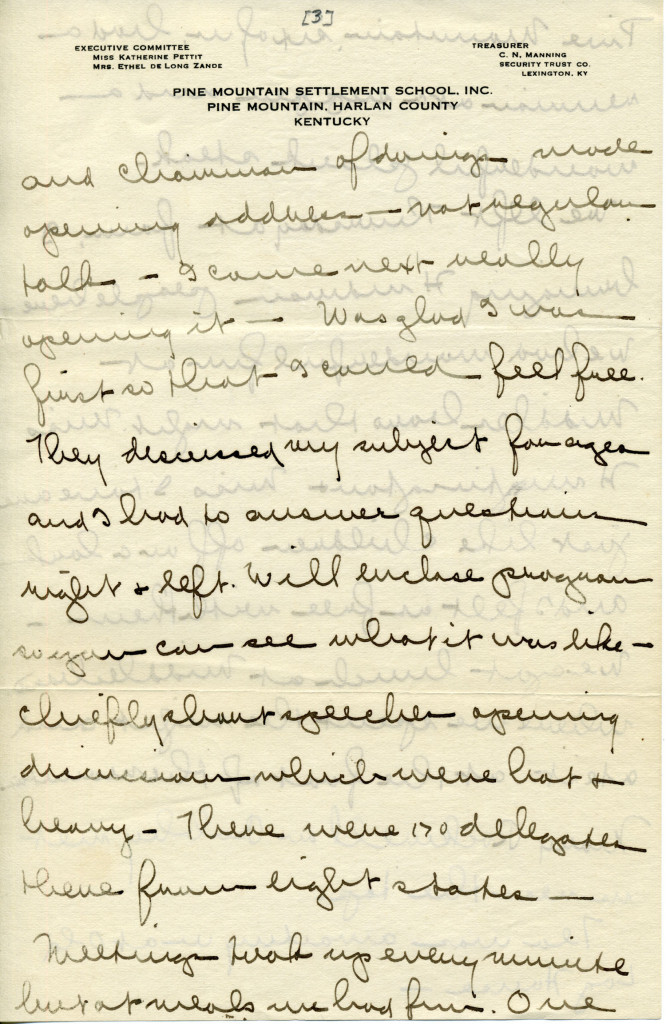 [3]
EXECUTIVE COMMITTEE
MISS KATHERINE PETTIT
MRS. ETHEL DE LONG ZANDE
TREASURER
C. N. MANNING
SECURITY TRUST CO.
LEXINGTON, KY
PINE MOUNTAIN SETTLEMENT SCHOOL, INC.
PINE MOUNTAIN, HARLAN COUNTY
KENTUCKY
and chairman of doings made
opening address — not regular
talk — I came next really
opening it — Was glad I was
first so that I could feel free.
They discussed my subject for ages
and I had to answer questions
right & left. Will enclose program
so you can see what it was like —
chiefly short speeches opening
discussion which were hot &
heavy — There were 170 delegates
there from eight states —
Meetings took up every minute
but at meals we had fun. One